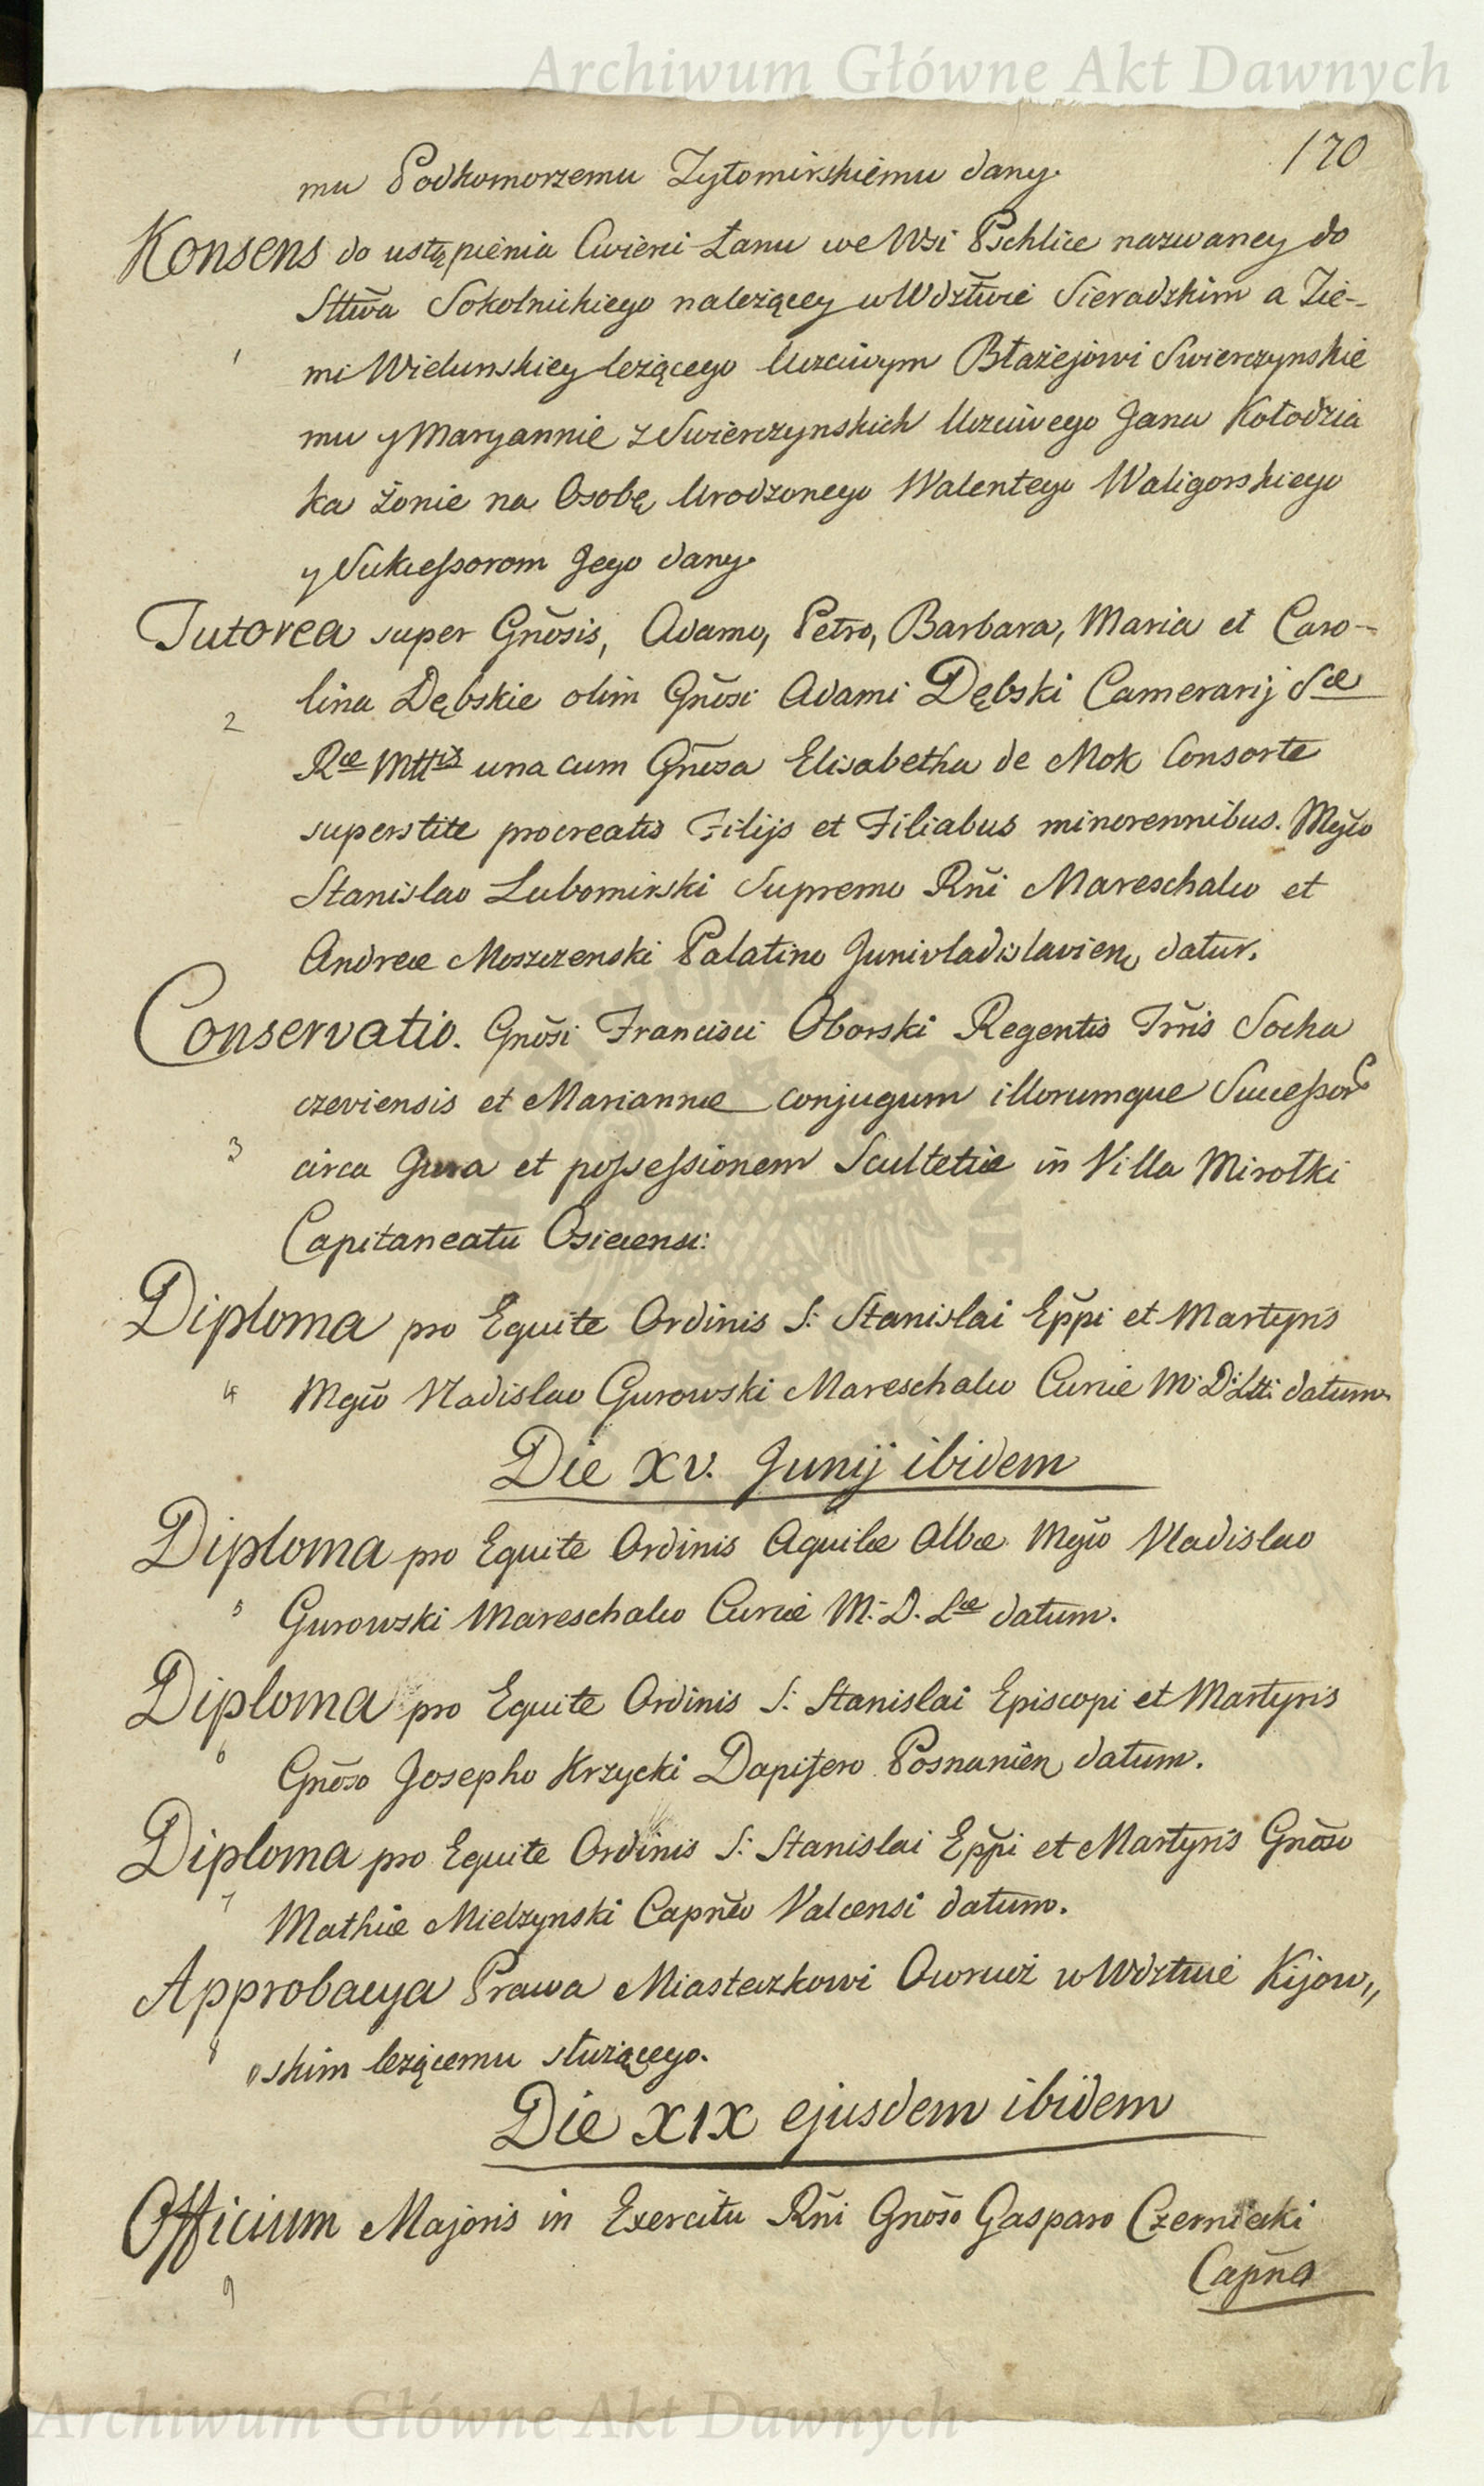 Archiwum Główne Akt Dawnych
170
mu Podkomorzemu Zytomirskiemu dany.
Konsens do ustąpienia Cwierci Łanu we Wsi Pichlice nazwaney do
Sttwa Sokolnickiego nalezącey w Wdztwie Sieradzkim a Zie-
1
mi Wielunskiey leżącego Uczciwym Błażejowi Swierczynskie
mu y Maryannie z Swierczynskich Uczciwego Jana Kołodzia
ka żonie na Osobę Urodzonego Walentego Waligorskiego
y Sukcessorom Jego dany.
Tutorea super Gnosis, Adamo, Petro, Barbara, Maria et Caro-
lina Dębskie olim Gnosi Adami Dębski Camerarij Sæ
2
Ræ Mttis una cum Gnosa Elisabetha de Mok Consorte
superstite procreatis Filijs et Filiabus minorennibus. Mgco
Stanislao Lubomirski Supremo Rni Mareschalco et
Andreæ Moszczenski Palatino Junivladislavien, datur.
Conservatio. Gnosi Francisci Oborski Regentis Trris Socha
czeviensis et Mariannæ conjugum illorumque Successor
3
circa Jura et possessionem Scultetiæ in Villa Mirotki
Capitaneatu Osiecensi:
Diploma pro Equite Ordinis S: Stanislai Eppi et Martyris
4
Mgco Vladislao Gurowski Mareschalco Curiæ M: D: Ltt: datum.
Die XV. Junij ibidem
Diploma pro Equite Ordinis Aquilæ Albæ Mgco Vladislao
5
Gurowski Mareschalco Curiæ M: D. Læ datum.
Diploma pro Equite Ordinis S: Stanislai Episcopi et Martyris
6
Gnoso Josepho Krzycki Dapifero Posnanien, datum.
Diploma pro Equite Ordinis S: Stanislai Eppi et Martyris Gnoso
7
Mathiæ Mielzynski Capneo Valcensi datum.
Approbacya Prawa Miasteczkowi Owrucz w Wdztwie Kijow,,
8
skim lezącemu służącego.
Die XIX ejusdem ibidem
Officium Majoris in Exercitu Rni Gnoso Gasparo Czernicki
9
Capna
Archiwum Główne Akt Dawnych